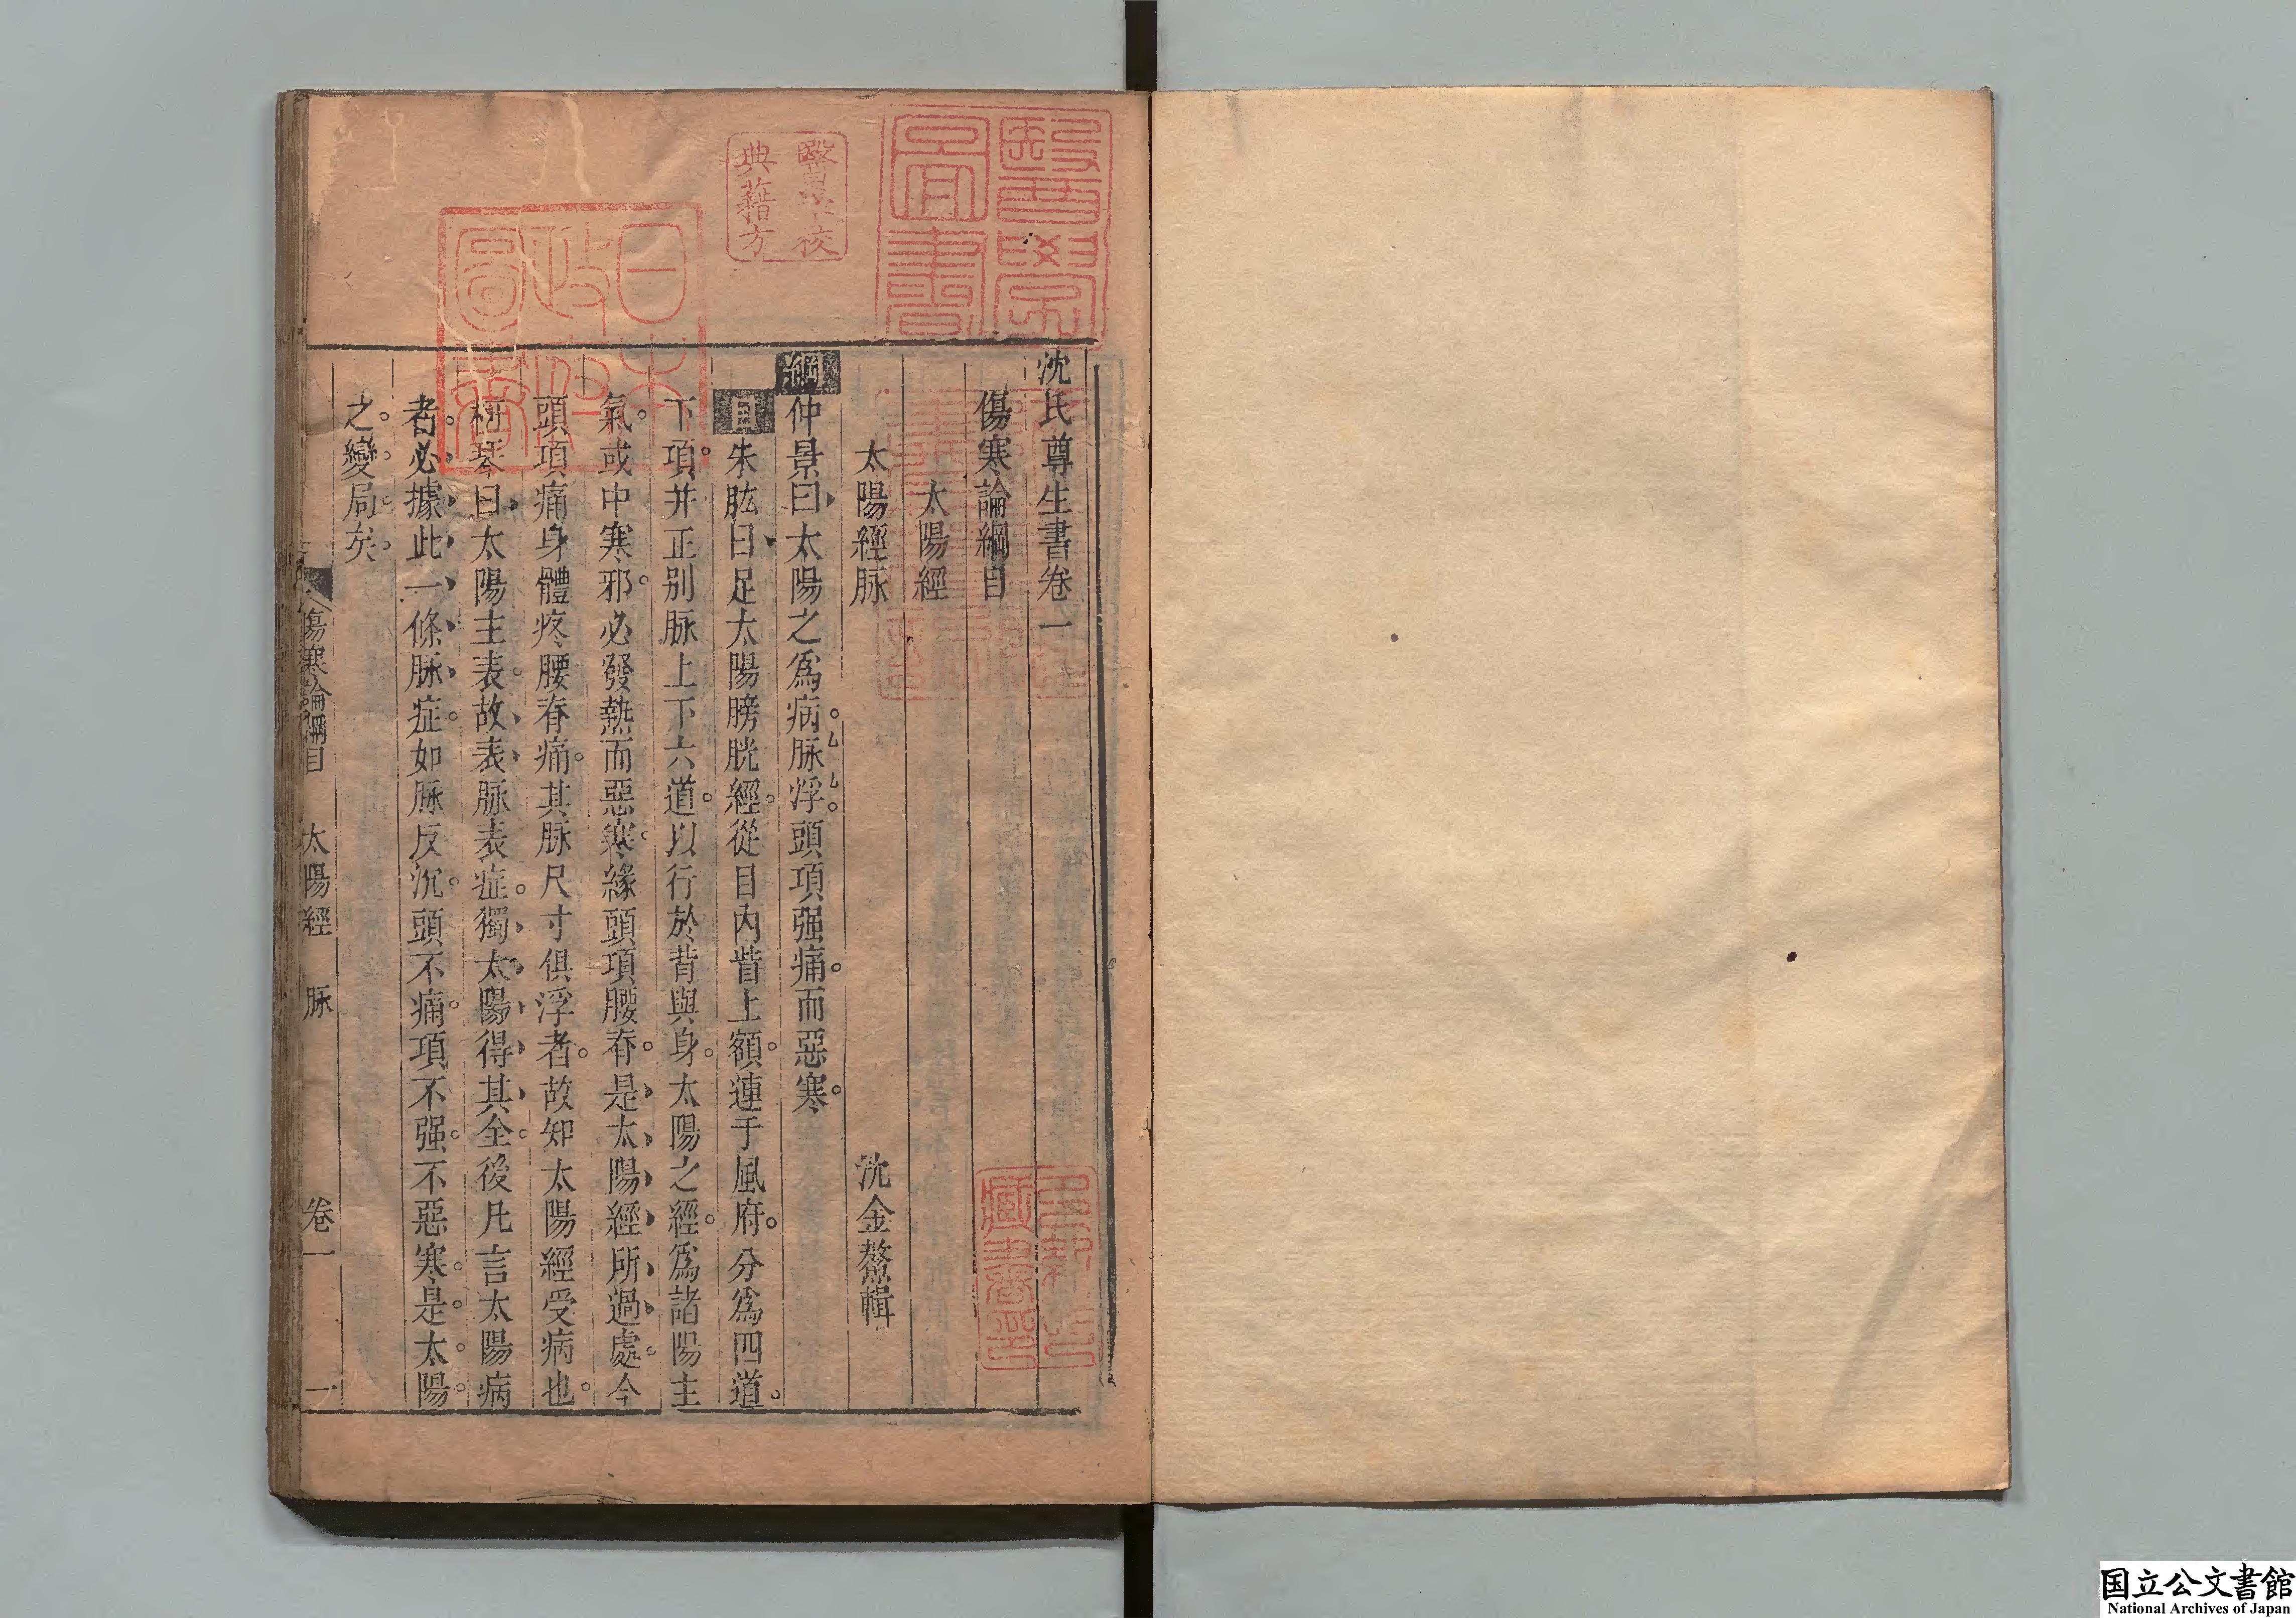 沈氏尊生書卷一
傷寒論綱目
太陽經
太陽經脉
沈金鰲輯
綱仲景曰太陽之爲病。脉浮。頭項强痛。而惡寒。
目朱肱曰足太陽膀胱經。從目內眥上額。連于風府。分爲四道。
下項。幷正別脉上下六道。以行於背與身。太陽之經。爲諸陽主
氣。或中寒邪。必發熱而惡寒。緣頭項腰脊。是太陽經所過處。今
頭項痛身體疼腰脊痛。其脉尺寸俱浮者。故知太陽經受病也。
柯琴曰太陽主表。故表脉表症。獨太陽得其全。後凡言太陽病
者。必據此一條脉症。如脉反沉。頭不痛。項不强。不惡寒。是太陽。
之。變。局。矣。
傷寒論綱目 太陽經 脉 卷一 一
醫學圖書
醫學校典藉方
日本政府圖書
国立公文書館
National Archives of Japan